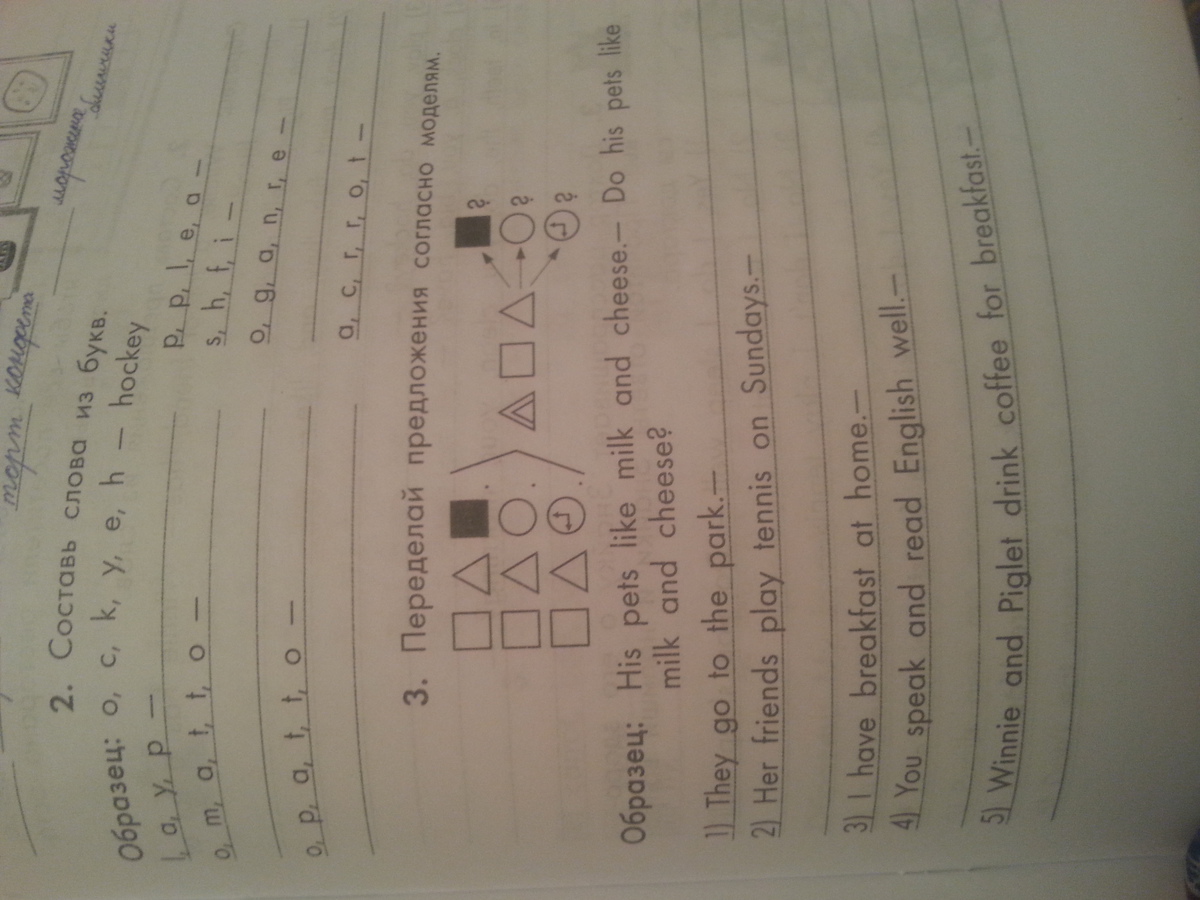 торт конфета
морожина блинчики
2. Составь слова из букв.
Образец: o, c, k, y, e, h — hockey
l, a, y, p —
p, p, l, e, a —
o, m, a, t, t, o —
s, h, f, i —
o, g, a, n, r, e —
o, p, a, t, t, o —
a, c, r, r, o, t —
3. Переделай предложения согласно моделям.
. ?
. ?
. ?
Образец: His pets like milk and cheese.— Do his pets like
milk and cheese?
1) They go to the park.—
2) Her friends play tennis on Sundays.—
3) I have breakfast at home.—
4) You speak and read English well.—
5) Winnie and Piglet drink coffee for breakfast.—